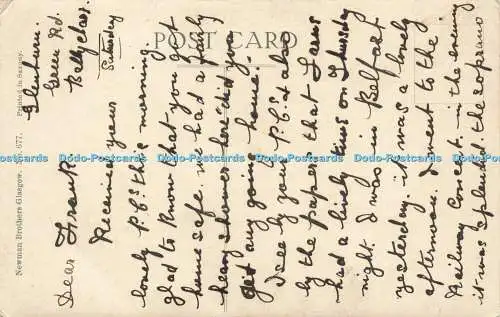 POST CARD
Newman Brothers Glasgow. No. 677.
Printed in Saxony.
Glenburn.
Green Rd.
Ballyclare.
Saturday
Dear Frank
Received your
lovely P.Cs this morning.
glad to know that you got
home safe. we had a fairly
heavy shower here did you
get any going home.
I see by your P.C. & also
by the papers that Larne
had a lively time on Thursday
night. I was in Belfast
yesterday. it was a lovely
afternoon. I went to the
Railway Concert in the evening
it was splendid the soprano
Dodo-Postcards Dodo-Postcards Dodo-Postcards Dodo-Postcards Dodo-Postcards